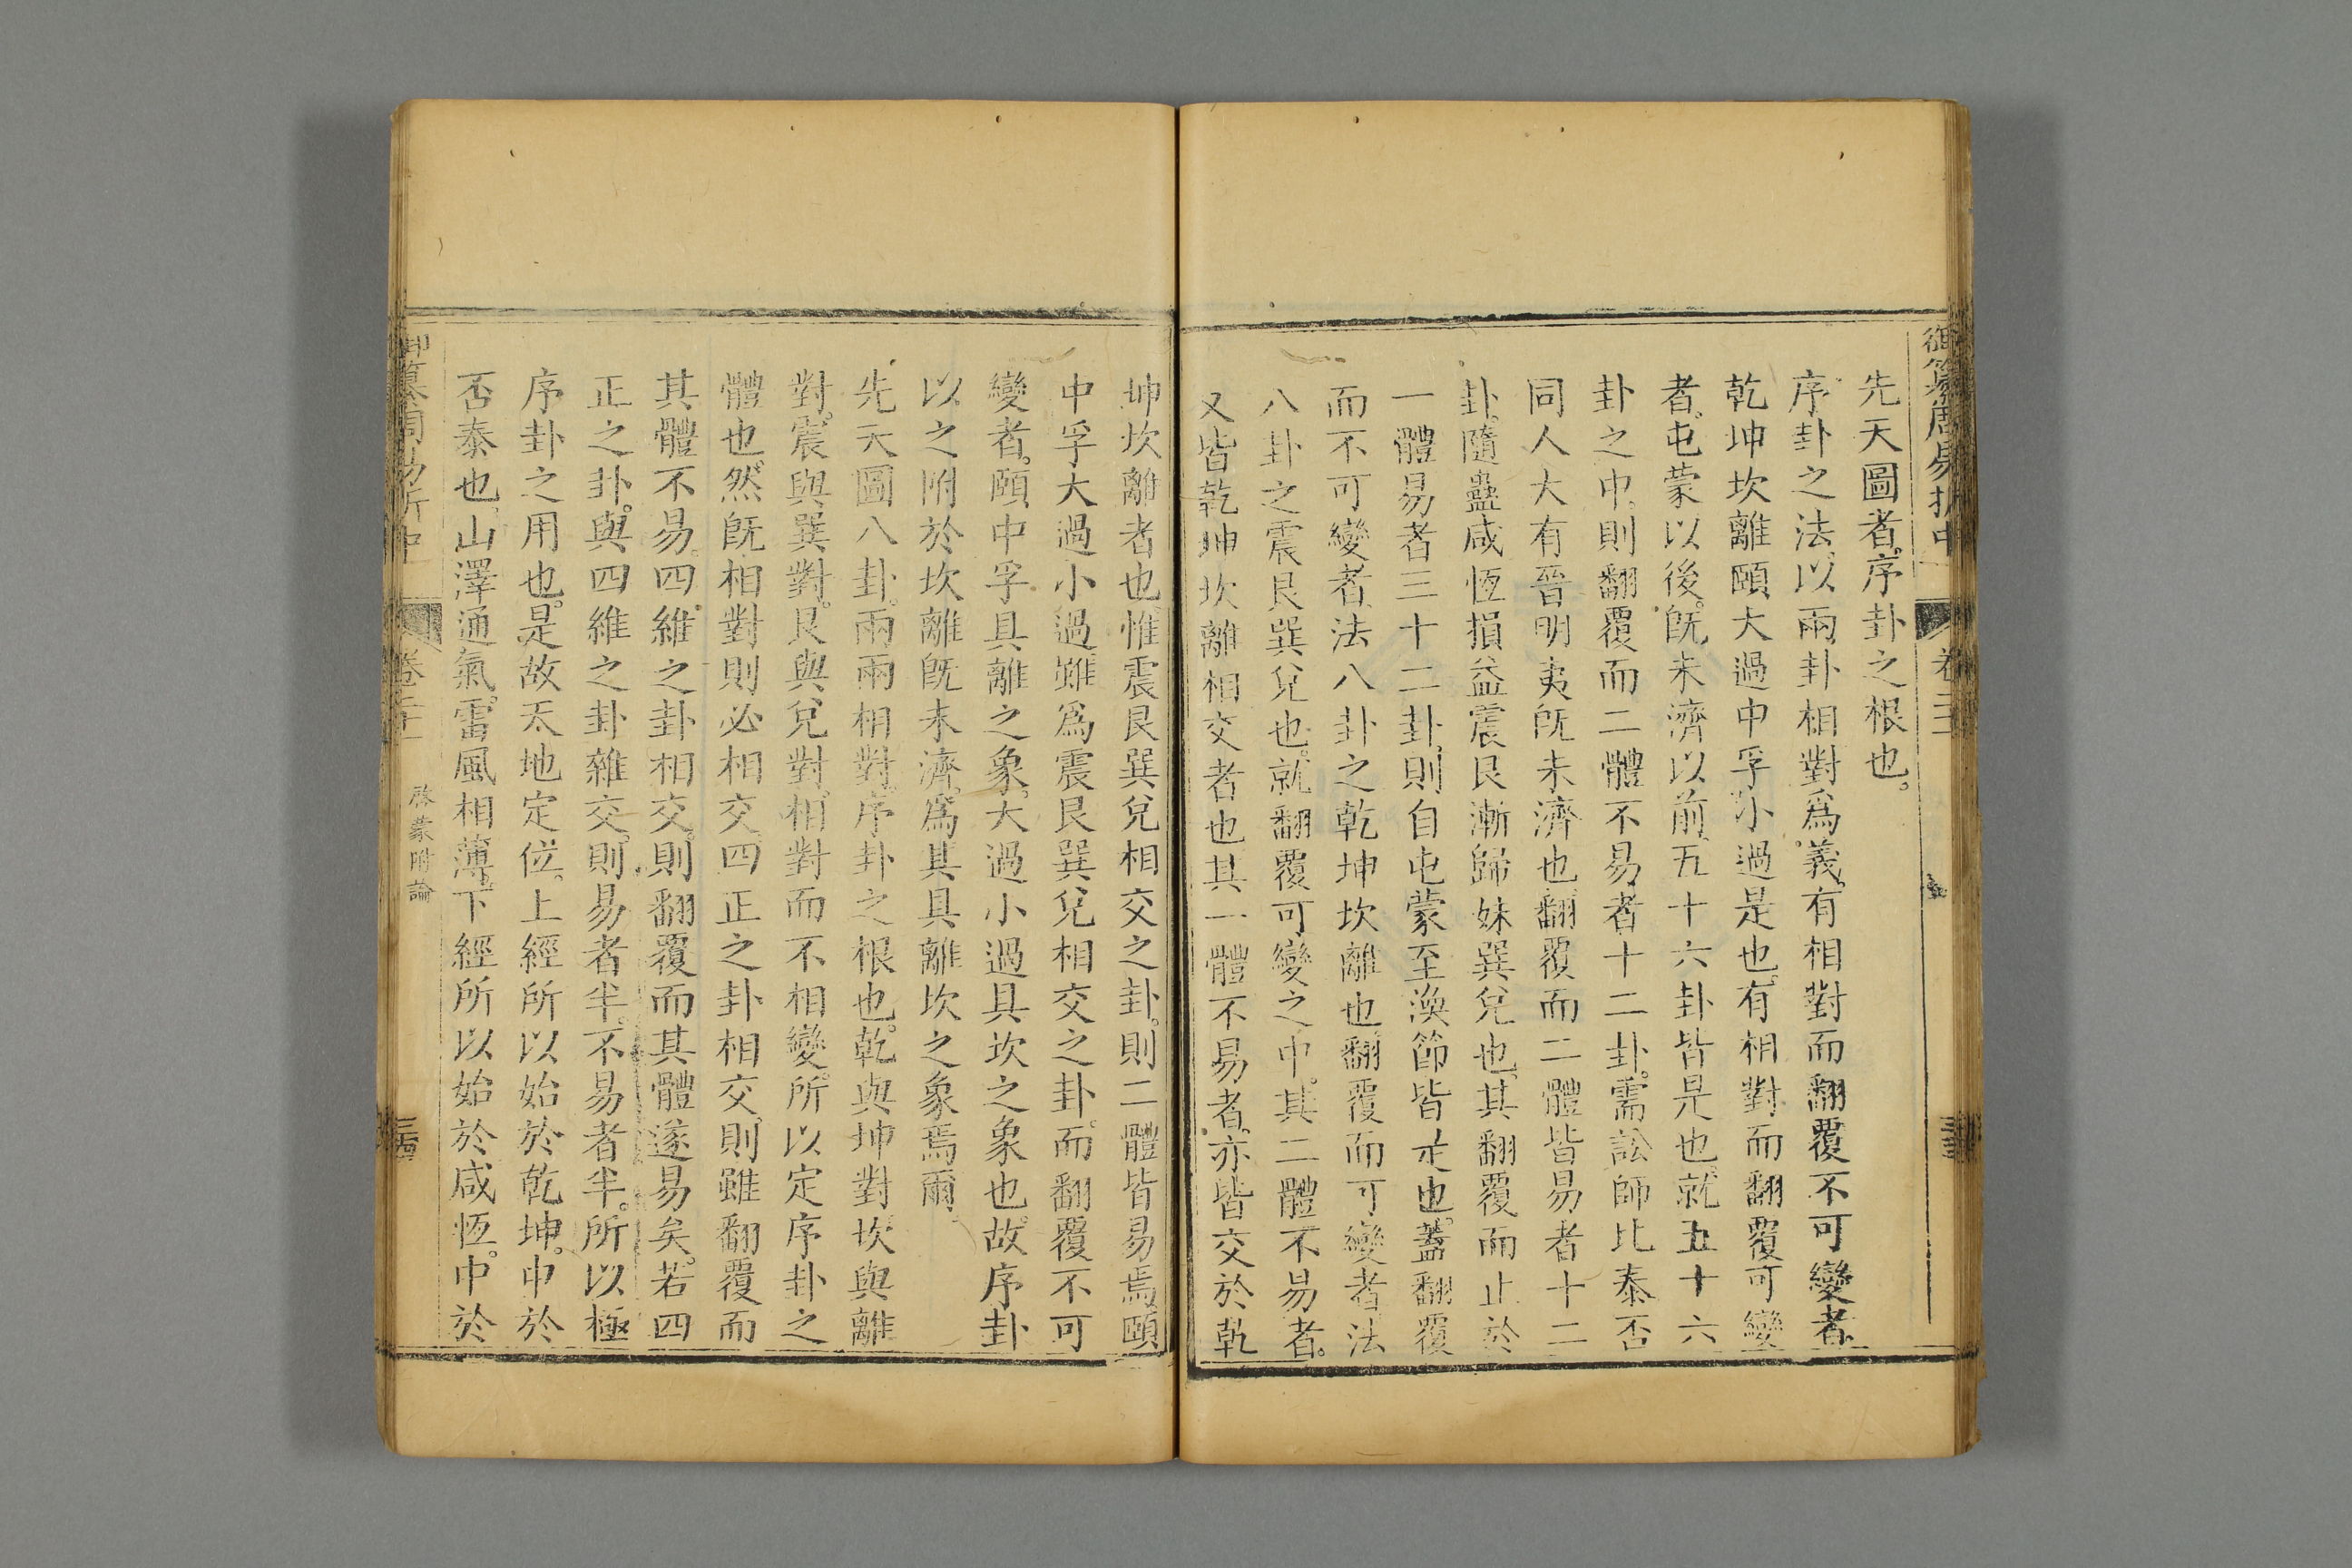 御纂周易折中
卷二十一
先天圖者。序卦之根也。
序卦之法。以兩卦相對爲義。有相對而翻覆不可變者。
乾坤坎離頤大過中孚小過是也。有相對而翻覆可變
者。屯蒙以後。旣未濟以前。五十六卦皆是也。就五十六
卦之中。則翻覆而二體不易者十二卦。需訟師比泰否
同人大有晉明夷旣未濟也。翻覆而二體皆易者十二
卦。隨蠱咸恆損益震艮漸歸妹巽兌也。其翻覆而止於
一體易者三十二卦。則自屯蒙至渙節皆是也。蓋翻覆
而不可變者。法八卦之乾坤坎離也。翻覆而可變者。法
八卦之震艮巽兌也。就翻覆可變之中。其二體不易者。
又皆乾坤坎離相交者也。其一體不易者。亦皆交於乾
坤坎離者也。惟震艮巽兌相交之卦。則二體皆易焉。頤
中孚大過小過雖爲震艮巽兌相交之卦。而翻覆不可
變者。頤中孚具離之象。大過小過具坎之象也。故序卦
以之附於坎離旣未濟。爲其具離坎之象焉爾。
先天圖八卦。兩兩相對。序卦之根也。乾與坤對。坎與離
對。震與巽對。艮與兌對。相對而不相變。所以定序卦之
體也。然旣相對則必相交。四正之卦相交。則雖翻覆而
其體不易。四維之卦相交。則翻覆而其體遂易矣。若四
正之卦。與四維之卦雜交。則易者半。不易者半。所以極
序卦之用也。是故天地定位。上經所以始於乾坤。中於
否泰也。山澤通氣。雷風相薄。下經所以始於咸恆。中於
御纂周易折中
卷二十一
啓蒙附論